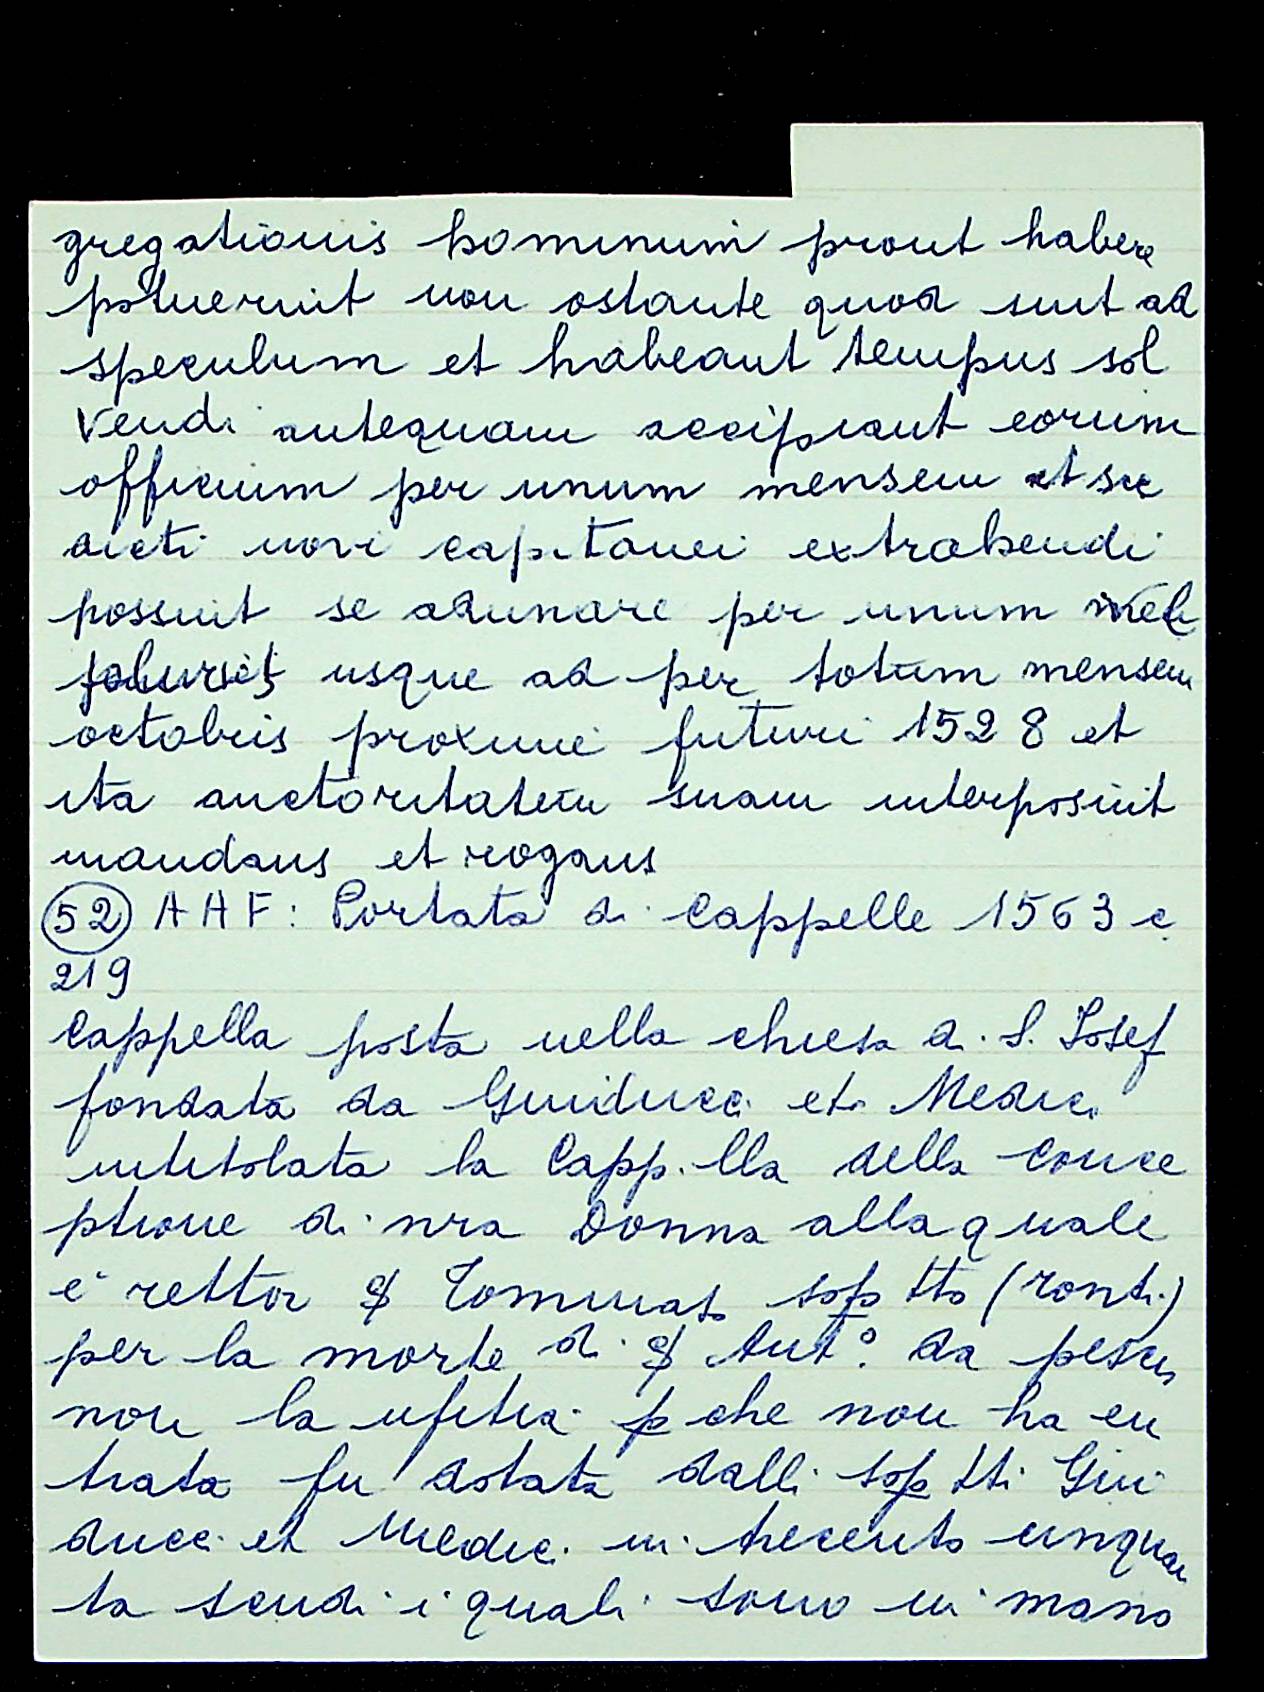 gregationis hominum prout habere
potuerint non ostante quod sint ad
speculum et habeant tempus sol
vendi antequam accipiant eorum
officium per unum mensem et sic
dicti novi capitanei extrahendi
possint se adunare per unum
usque ad per totum mensem
octobris proxime futuri 1528 et
ita auctoritatem suam interposuit
mandans et rogans
52 AAF: Portata di Cappelle 1563 c
219
Cappella posta nella chiesa di S. Josef
fondata da Guiducci et Medici
intitolata la Capp.lla della conce
ptione di nra Donna alla quale
è rettor S Tommaso sop tto (ronti)
per la morte di S Ant.o da pescia
non la ufitia p che non ha en
trata fu dotata dalli sop tti Gui
ducci et Medici in trecento cinquan
ta scudi i quali sono in mano